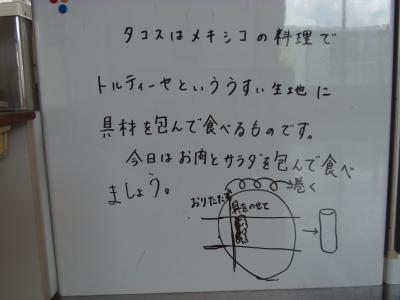 タコスはメキシコの料理で
トルティーヤといううすい生地に
具材を包んで食べるものです。
今日はお肉とサラダを包んで食べ
ましょう。
巻く
おりたたむ
具をのせて